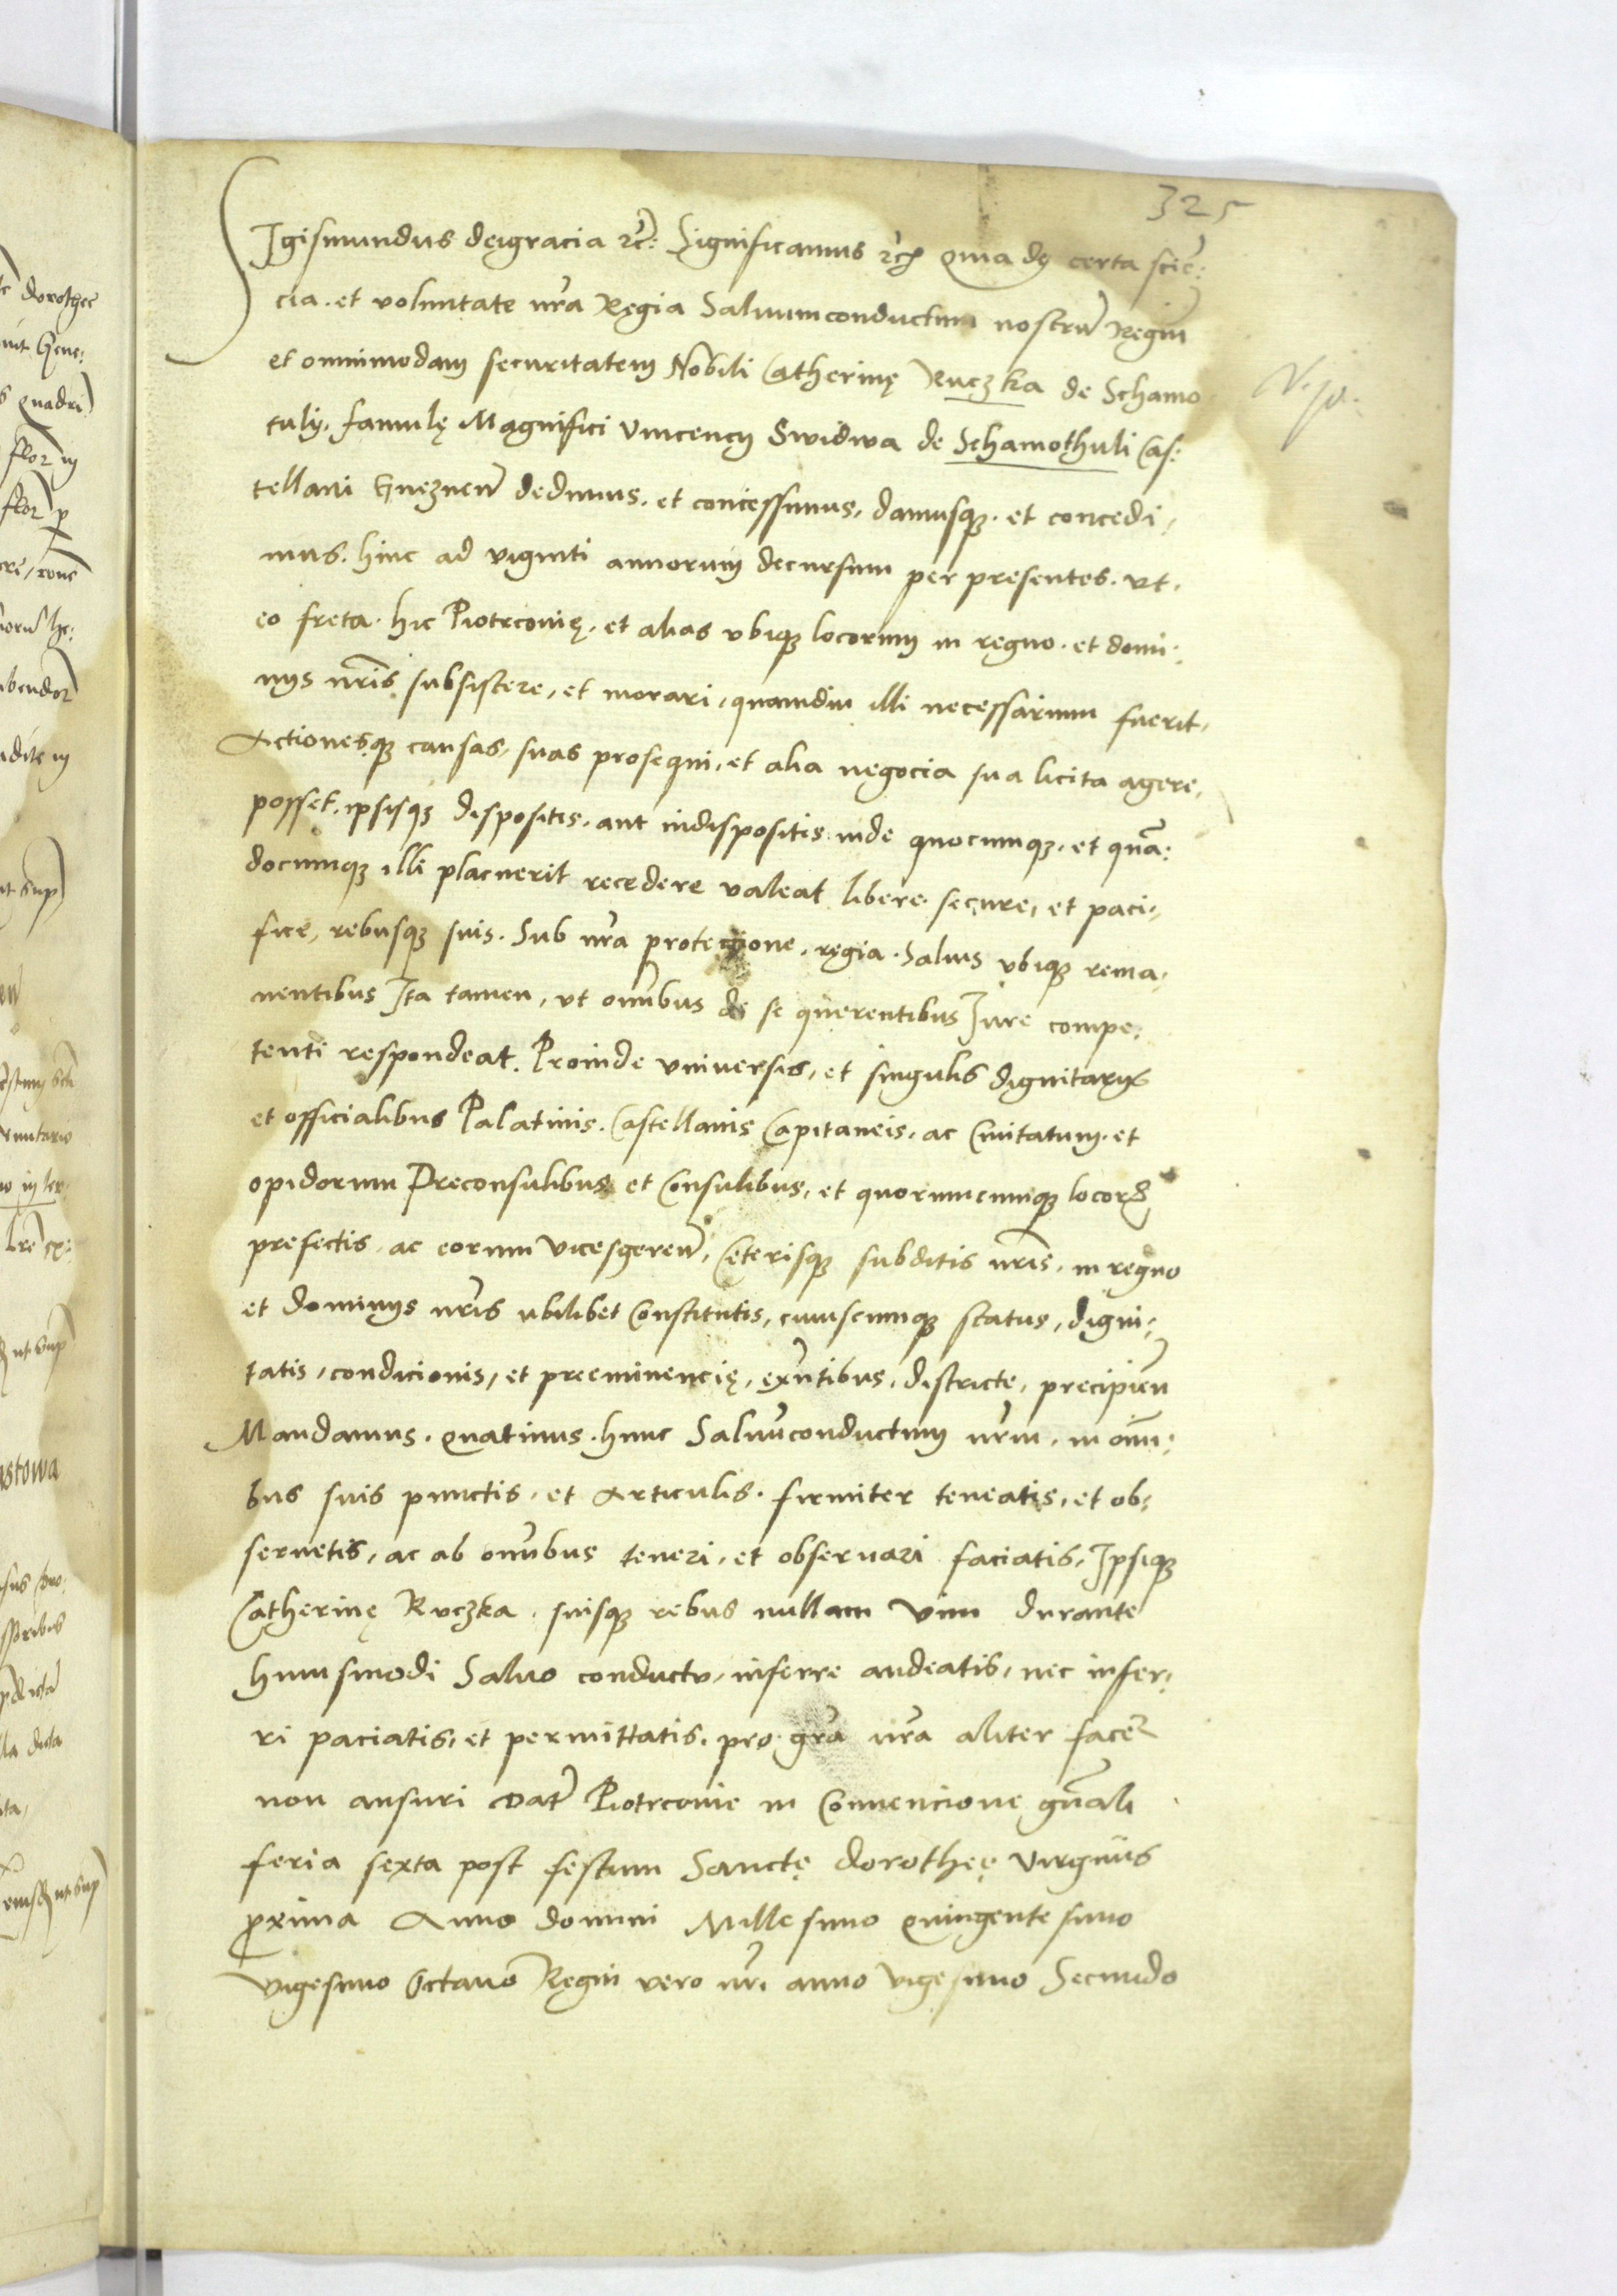 325
Sigismundus dęigracia etc: Significamus etc quia dę certa scie͂:
cia. et voluntate nr̃a Ręgia Saluumconductum nostrũ Ręgiũ
et omnimodam securitatem Nobili Catherinę Ruczka de Schamo
tulÿ, famulę Magnifici Vincencÿ Swidwa de Schamothuli Cas:
tellani Gneznen̄ dedimus. et concessimus, damusq₃. et concedi,
mus. hinc ad viginti annorum decursum per presentes. vt.
eo freta. hic Piotrconię. et alias vbiq₃ locorum in ręgno. et domi:
nÿs nr̃is subsistere, et morari, quamdiu illi necessarium fuerit,
Actionesq₃ causas, suas prosequi, et alia negocia sua licita agere,
posset. ipsisq₃ dispositis. aut indispositis inde quocumq₃. et quã:
documq₃ illi placuerit recedere valeat libere. secure, et paci,
fice, rebusq₃ suis. Sub nr̃a protectione. ręgia. Saluis vbiq₃ rema,
nentibus Ita tamen, vt omĩbus de se querentibus Jure compe:
tenti respondeat. Proinde vniuersis, et singulis dignitarÿs
et officialibus Palatinis. Castellanis Capitaneis. ac Ciuitatum. et
opidorum Preconsulibus et Consulibus, et quorumcumq₃ locoꝝ
prefectis. ac eorum vicesgeren̄, Cęterisq₃ subditis nr̃is. in regno
et dominÿs nr̃is ubilibet Constitutis, cuiuscumq₃ status, digni:
tatis, condicionis, et preeminencię, exñtibus, districte, precipien̄
Mandamus. quatinus. hunc Saluũconductum nr̃m. in om̃i:
bus suis punctis. et Articulis. firmiter teneatis, et ob,
seruetis, ac ab omĩbus teneri, et obseruari faciatis, Ipsiq₃
Catherinę Ruczka. suisq₃ rebus nullam Vim durante
huiusmodi Saluo conductu, inferre audeatis, nec infer,
ri paciatis, et permittatis. pro. gr̃a nr̃a aliter facer̃
non ansuri Dat̃ Piotrconie in Conuencione gñali
feria sexta post festum Sanctę Dorothęę Virginis
ꝓxima Anno domini Millesimo quingentesimo
vigesimo Octauo Ręgni vero nr̃i anno vigesimo Secundo